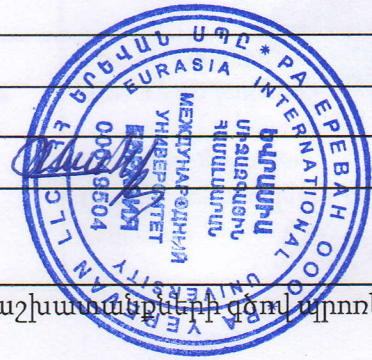 ՀՀ ԵՐԵՎԱՆ ՍՊԸ * РА ЕРЕВАН ООО * RA YEREVAN LLC
EURASIA INTERNATIONAL UNIVERSITY
ԵՎՐԱՍԻԱ
ՄԻՋԱԶԳԱՅԻՆ
ՀԱՄԱԼՍԱՐԱՆ
МЕЖДУНАРОДНЫЙ
УНИВЕРСИТЕТ
ЕВРАЗИЯ
աշխատանքների գծով պրոռե